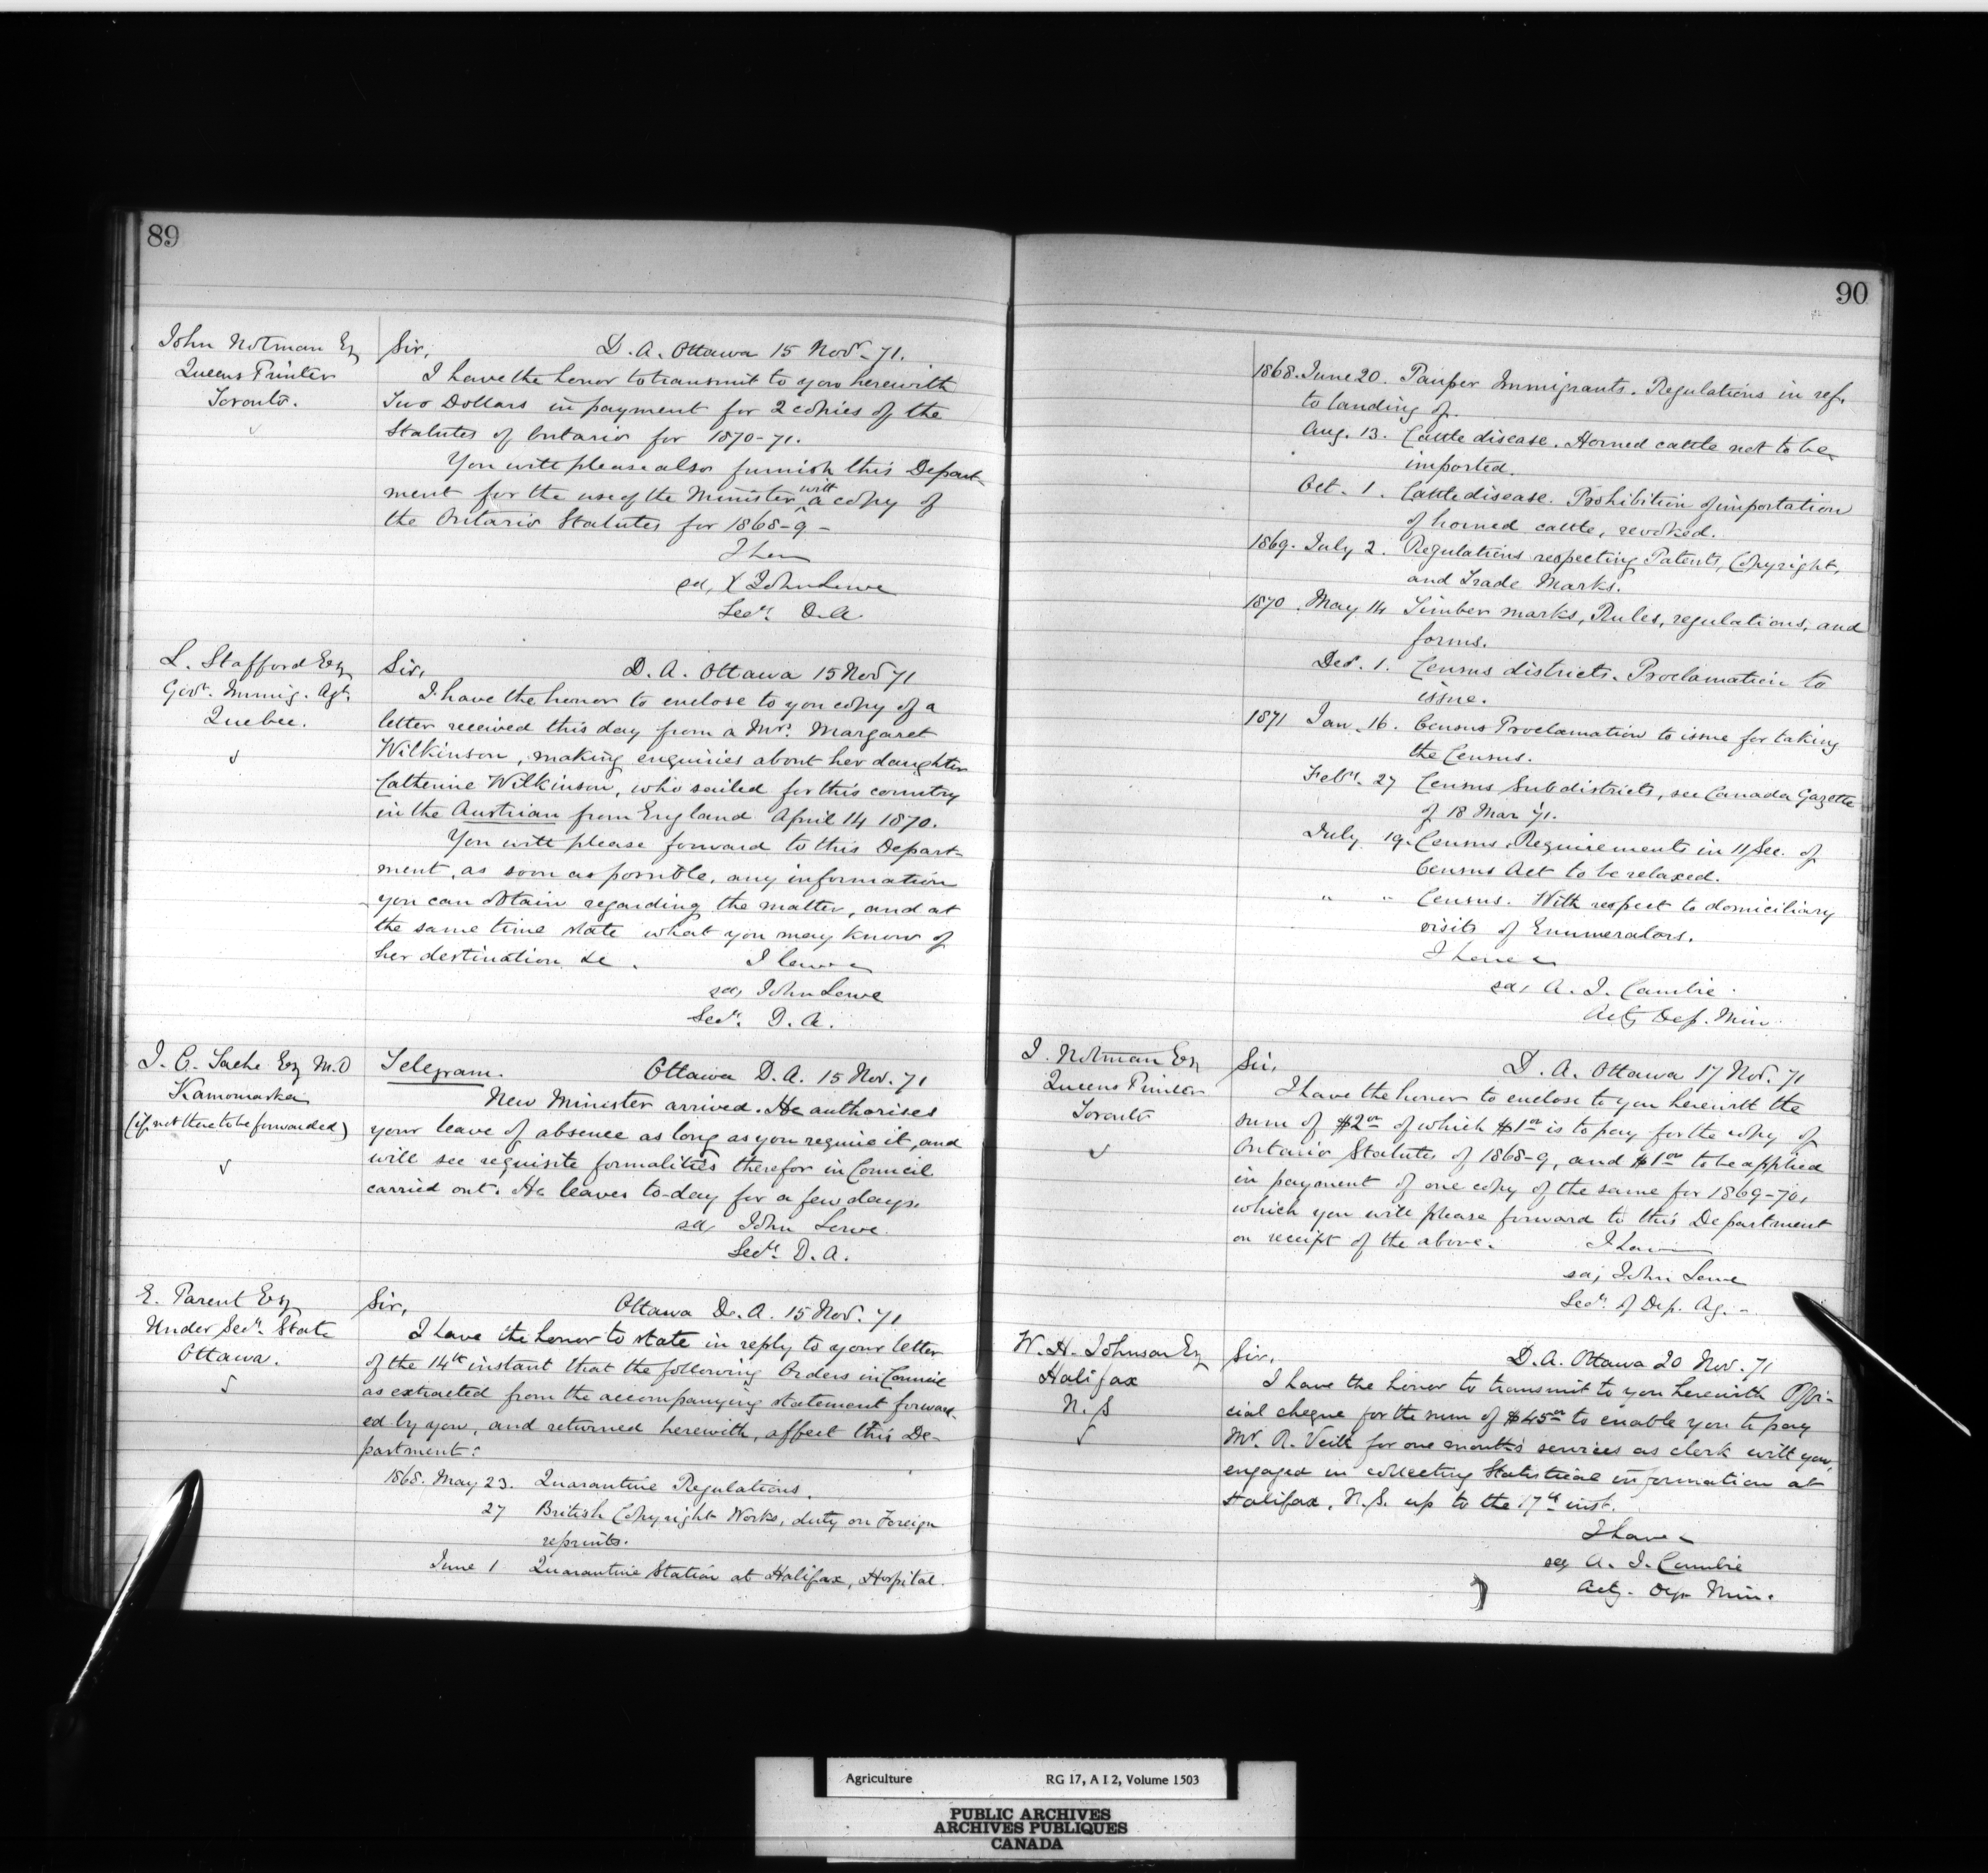 89
John Notman Esq
Queens Printer
Toronto.
Sir, D. A. Ottawa 15 Nov. 71.
I have the honor to transmit to you herewith
Two Dollars in payment for 2 copies of the
Statutes of Ontario for 1870-71.
You will please also furnish this Depart-
ment for the use of the Minister with a copy of
the Ontario Statutes for 1868-9-
I have
sd, John Lowe
Secy. D.A.
L. Stafford Esq
Govt. Immig. Agt.
Quebec.
Sir, D. A. Ottawa 15 Nov 71
I have the honor to enclose to you copy of a
letter received this day from a Mrs. Margaret
Wilkinson, making enquiries about her daughter
Catherine Wilkinson, who sailed for this country
in the Austrian from England April 14 1870.
You will please forward to this Depart-
ment, as soon as possible, any information
you can obtain regarding the matter, and at
the same time state what you may know of
her destination &c. I have
sd, John Lowe
Secy. D. A.
J. C. Tache Esq M.D
Kamouraska
(if not there to be forwarded)
Telegram. Ottawa D. A. 15 Nov. 71
New Minister arrived. He authorises
your leave of absence as long as you require it, and
will see requisite formalities therefor in Council
carried out. He leaves to-day for a few days.
sd, John Lowe.
Secy. D. A.
E. Parent Esq
Under Secy. State
Ottawa.
Sir, Ottawa D. A. 15 Nov. 71
I have the honor to state in reply to your letter
of the 14th instant that the following Orders in Council
as extracted from the accompanying statement forward-
ed by you, and returned herewith, affect this De-
partment:
1868. May 23. Quarantine Regulations.
27 British Copyright Works, duty on Foreign
reprints.
June 1 Quarantine Station at Halifax, Hospital.
90
1868. June 20. Pauper Immigrants. Regulations in ref.
to landing of.
Aug. 13. Cattle disease. Horned cattle not to be
imported.
Oct. 1. Cattle disease. Prohibition of importation
of horned cattle, revoked.
1869. July 2. Regulations respecting Patents, Copyright,
and Trade Marks.
1870. May 14 Timber marks, Rules, regulations, and
forms.
Dec. 1. Census districts. Proclamation to
issue.
1871 Jan. 16. Census Proclamation to issue for taking
the Census.
Feby. 27 Census Subdistricts, see Canada Gazette
of 18 Mar 71.
July 19. Census. Requirements in 11 Sec. of
Census Act to be relaxed.
" " Census. With respect to domiciliary
visits of Enumerators.
I have
sd, A. J. Cambie.
Actg Dep. Min.
J. Notman Esq
Queens Printer
Toronto
Sir, D. A. Ottawa 17 Nov. 71
I have the honor to enclose to you herewith the
sum of $2 00 of which $1 00 is to pay for the copy of
Ontario Statutes of 1868-9, and $1 00 to be applied
in payment of one copy of the same for 1869-70,
which you will please forward to this Department
on receipt of the above. I have
sd, John Lowe
Secy. of Dep. Ag.-
W. H. Johnson Esq
Halifax
N. S
Sir, D. A. Ottawa 20 Nov. 71
I have the honor to transmit to you herewith Offi-
cial cheque for the sum of $45 00 to enable you to pay
Mr. R. Veith for one month's services as clerk with you,
engaged in collecting Statistical information at
Halifax, N.S. up to the 17th inst.
I have
sd A. J. Cambie
Actg. Dep. Min.
Agriculture RG 17, A I 2, Volume 1503
PUBLIC ARCHIVES
ARCHIVES PUBLIQUES
CANADA